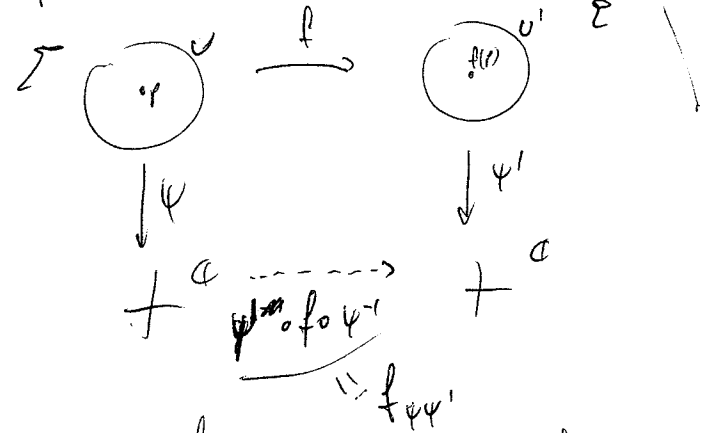 Σ U f U'
p f(p)
ψ ψ'
ℂ ℂ
ψ' ∘ f ∘ ψ⁻¹
= f ψψ'